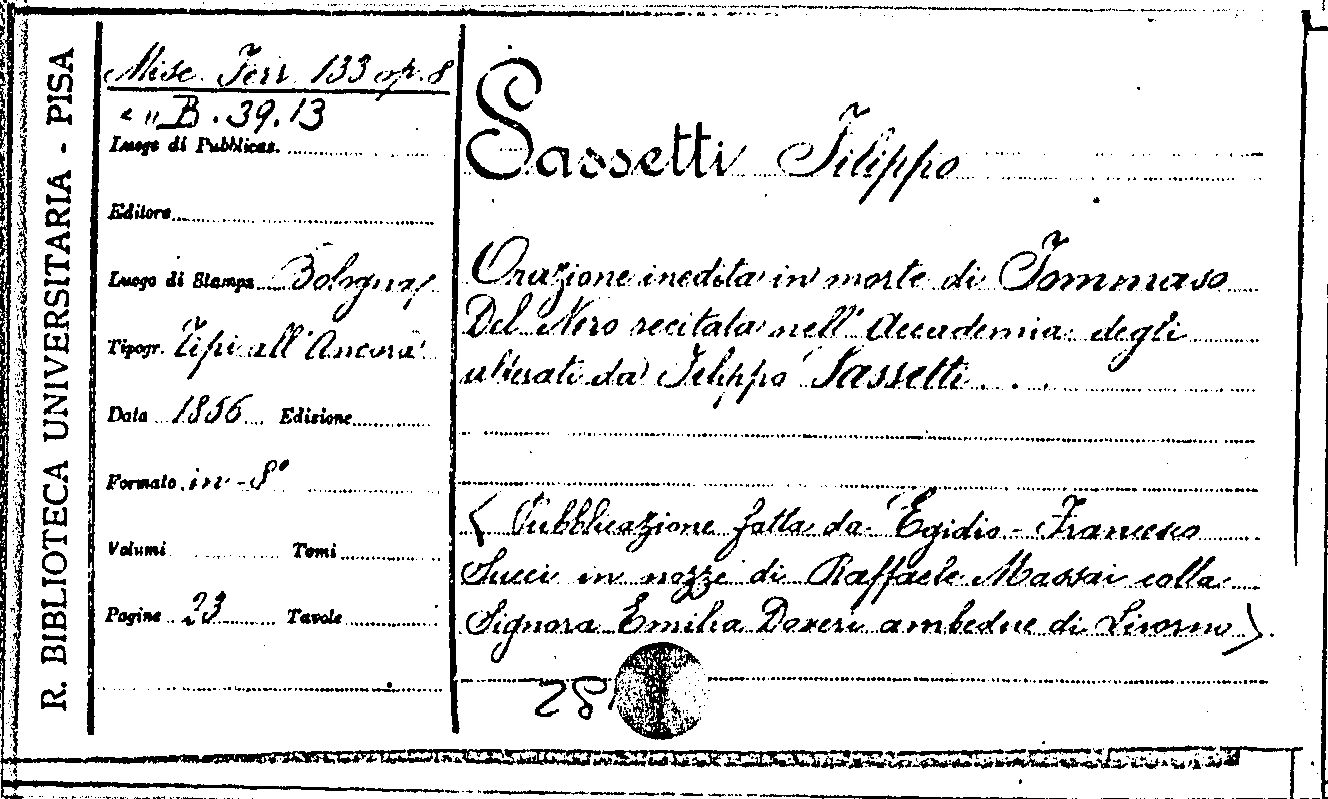 R. BIBLIOTECA UNIVERSITARIA - PISA
Misc. Ferr. 133 op. 8
" " B. 39. 13
Luogo di Pubblicaz.
Editore
Luogo di Stampa Bologna
Tipogr. Tipi all'Ancora
Data 1856 Edizione
Formato in-8°
Volumi Tomi
Pagine 23 Tavole
Sassetti Filippo
Orazione inedita in morte di Tommaso
Del Nero recitata nell'Accademia degli
alterati da Filippo Sassetti . . .
(Pubblicazione fatta da Egidio-Francesco
Succi in nozze di Raffaele Massai colla
Signora Emilia Doveri ambedue di Livorno)